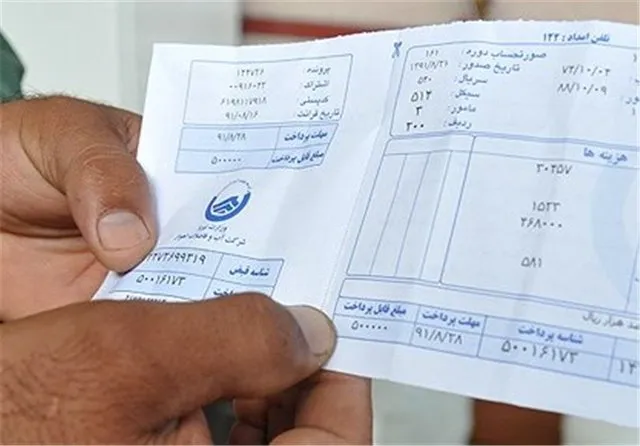 تلفن امداد : ۱۲۲
صورتحساب دوره : ۱۶۱
تاریخ صدور : ۱۳۹۱/۸/۲۱
۷۲/۱۰/۰۲
سریال : ۵۴۰
۸۸/۱۰/۰۹
سیکل : ۵۱۲
مامور : ۳
ردیف : ۲۰۰
هزینه ها
۳۰۲۵۷
۱۵۲۳
۴۶۸۰۰۰
۵۸۱
هزار ریال
مبلغ قابل پرداخت
مهلت پرداخت
شناسه پرداخت
۵۰۰۰۰۰
۹۱/۸/۲۸
۵۰۰۱۶۱۷۳
۱۴
پرونده :
اشتراک :
کدپستی :
تاریخ قرائت :
۹۱/۰۸/۱۶
مهلت پرداخت
۹۱/۸/۲۸
مبلغ قابل پرداخت
۵۰۰۰۰۰
وزارت نیرو
شرکت آب و فاضلاب اهواز
شناسه قبض
۵۰۰۱۶۱۷۳